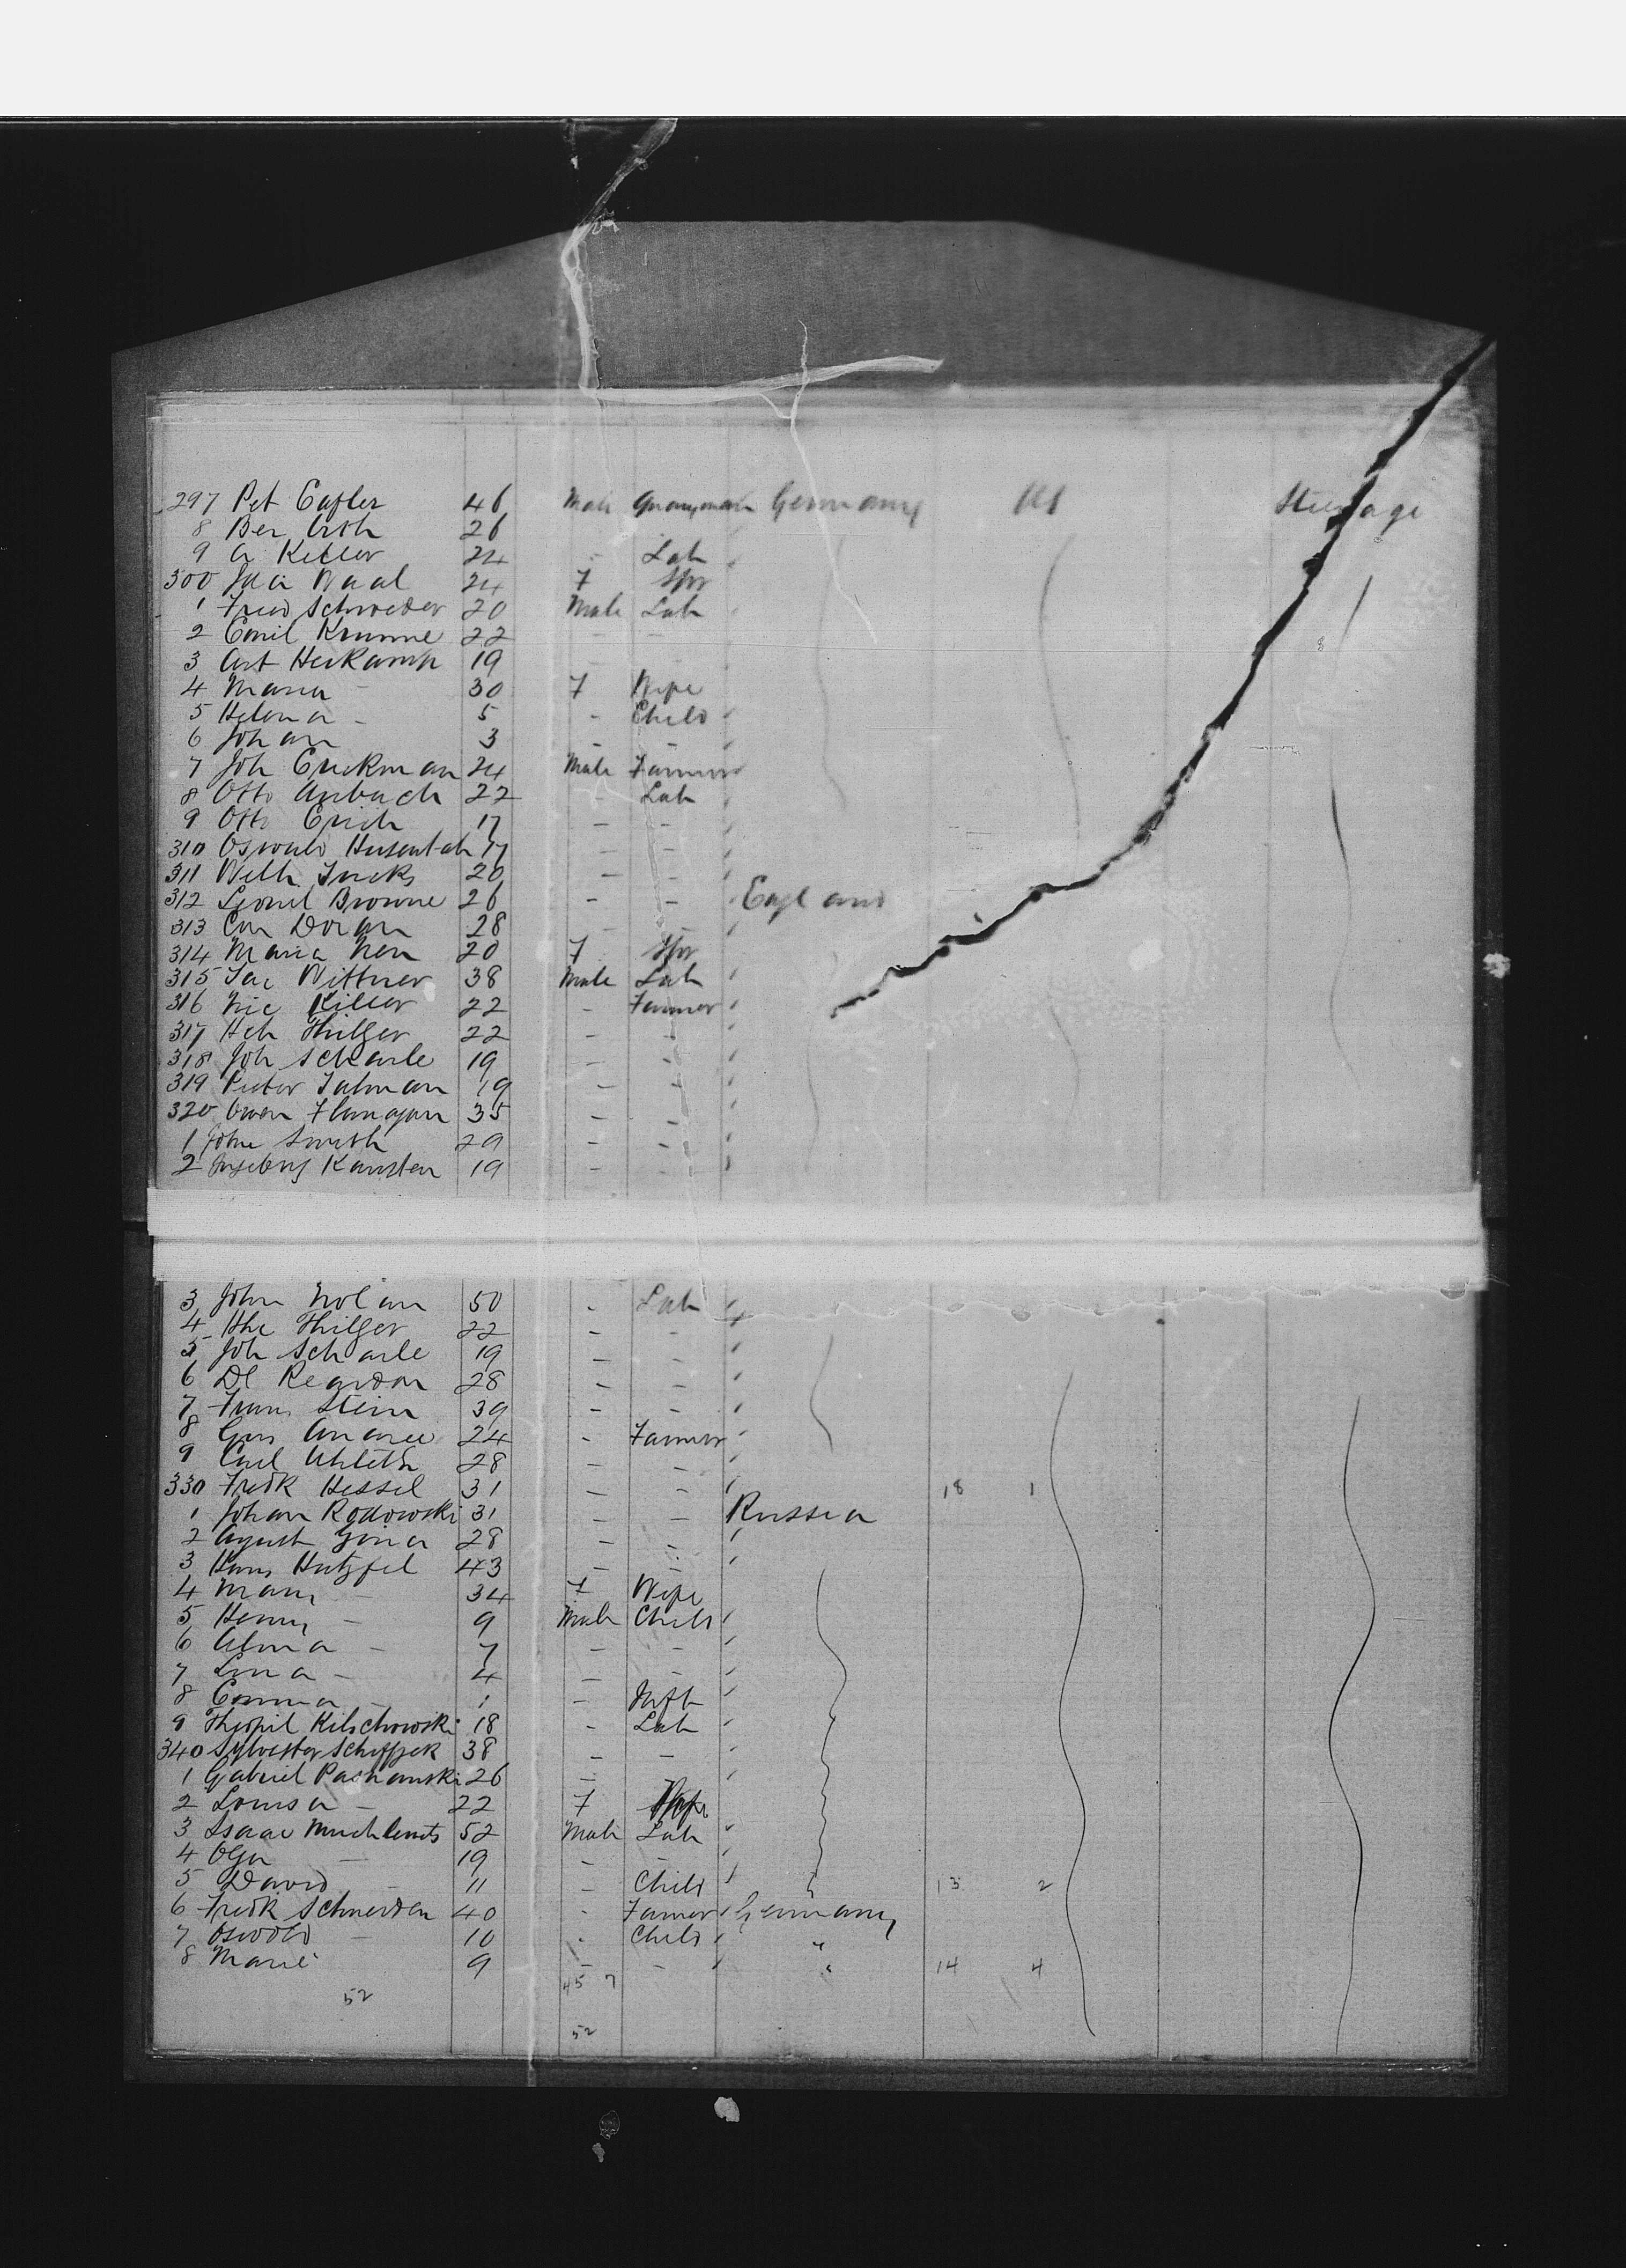 297 Pet Cafler 46 Male Germany US Steerage
8 Ber Orth 26
9 A Keller 24 - Lab
300 Ida Waal 24 F Spr
1 Fred Schroeder 20 Male Lab
2 Emil Krumme 22 - -
3 Art Herkamp 19
4 Maria - 30 F Wife
5 Helena - 5 - Child
6 Johan 3 - -
7 Joh Erickman 24 Male Farmer
8 Otto Aubach 22 - Lab
9 Otto Erich 17 - -
310 Oswald 17 - -
311 Welh 20 - -
312 Leonel Browne 26 - - England
313 Con Doran 28 - -
314 Maria Nen 20 F Spr
315 Jac Wittner 38 Male Lab
316 Nic Killer 22 - Farmer
317 Hch Thilger 22 - -
318 Joh Scharle 19 - -
319 Pieter Talman 19 - -
320 Owen Flanagan 35 - -
1 John Smith 29 - -
2 Ingeborg Karsten 19 - -
3 John Nolan 50 - Lab
4 Hhc Thilger 22 - -
5 Joh Scharle 19 - -
6 Dl Reardon 28 - -
7 Frans Stein 39 - -
8 Gus 24 - Farmer
9 Carl 28 - -
330 Fredk Hessel 31 - - 18 1
1 Johan Rodowski 31 - - Russia
2 August 28 - -
3 Hans Hutzfel 43 - -
4 Mary - 34 F Wife
5 Henry - 9 Male Child
6 Alma - 7 - -
7 Lina - 4 - -
8 Emma - 1 - Inft
9 Theophil Kilschowski 18 - Lab
340 Sylvester 38 - -
1 Gabriel 26 -
2 Louisa - 22 F
3 Isaac 52 Male Lab
4 Olga - 19 - -
5 David - 11 - Child 13 2
6 Fredk Schneider 40 - Farmer Germany
7 Oswald - 10 - Child "
8 Marie 9 - - " 14 4
52 45 7
52